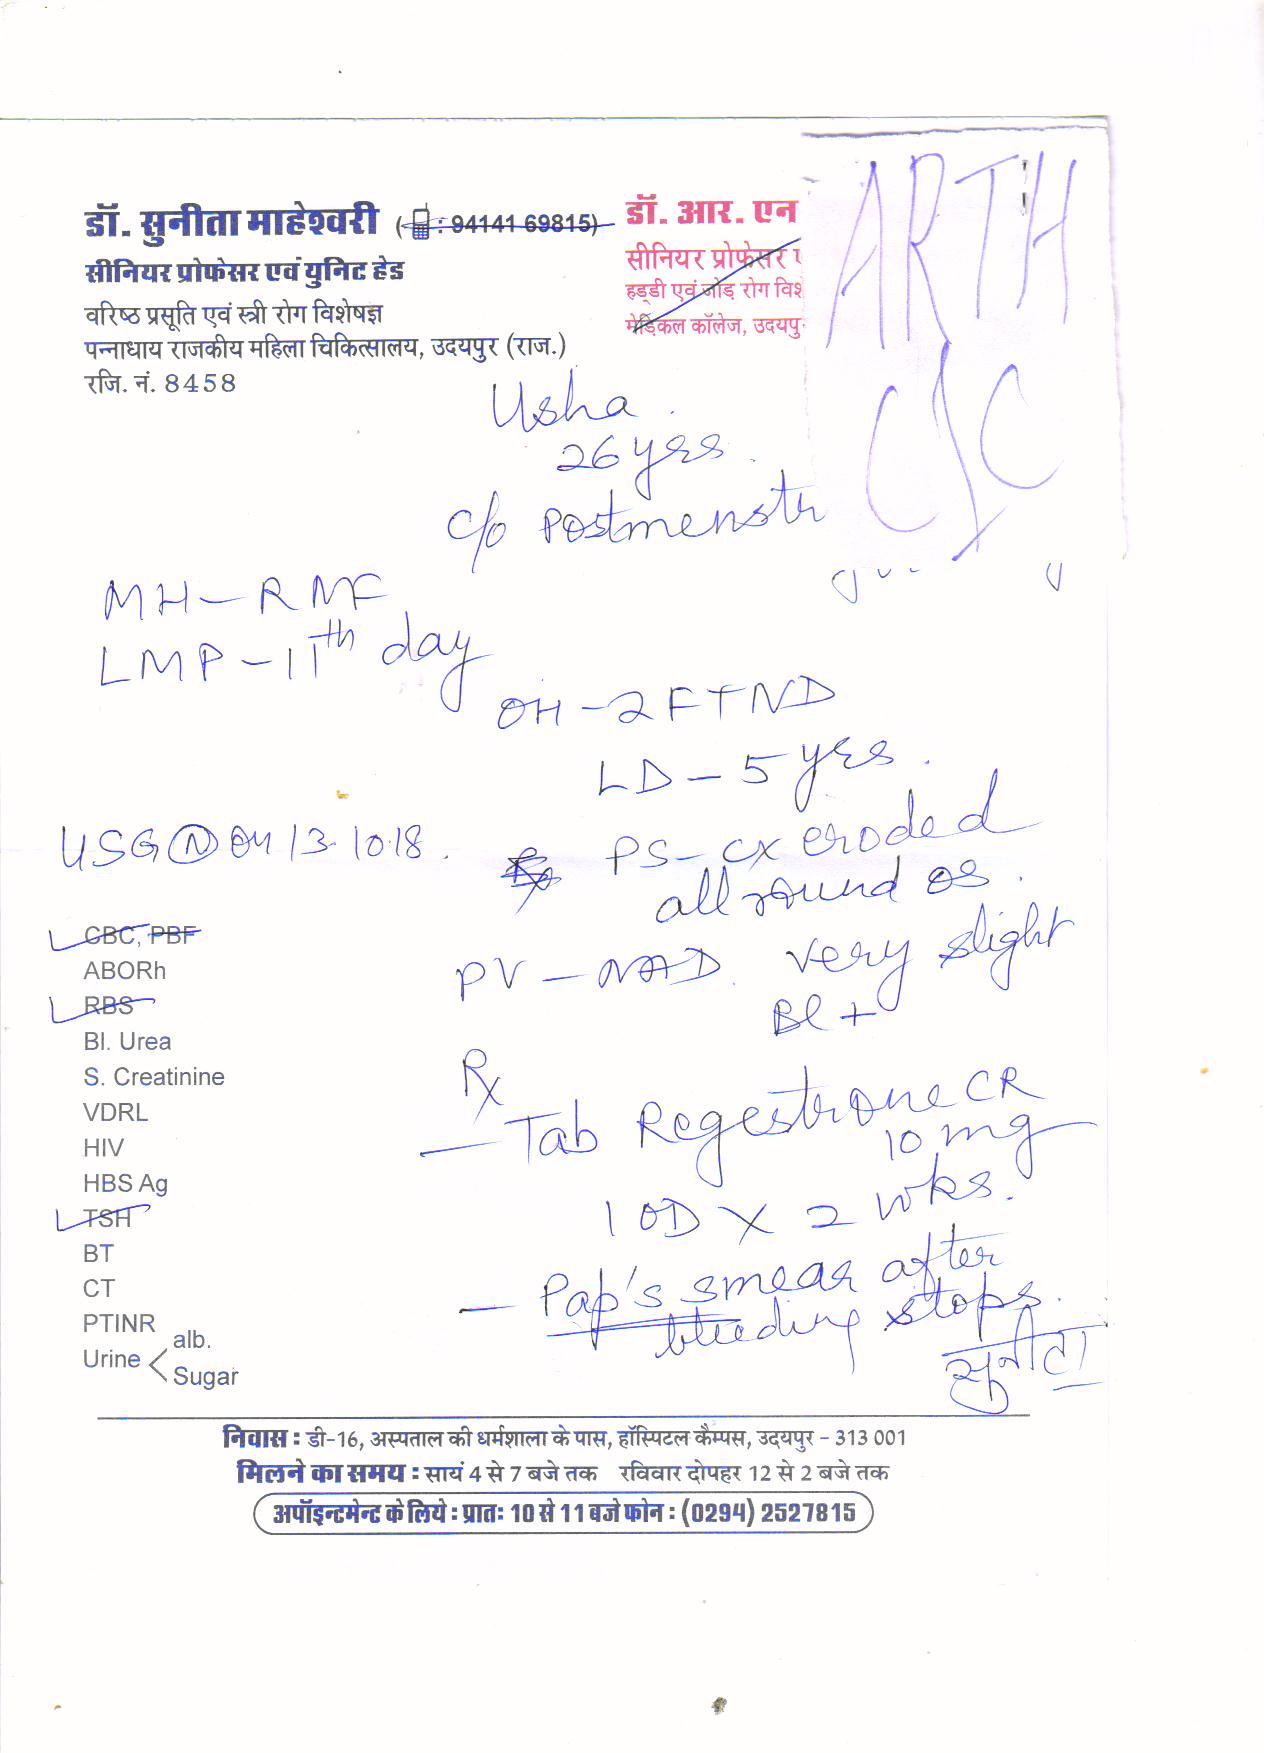 डॉ. सुनीता माहेश्वरी ( : 94141 69815)
सीनियर प्रोफेसर एवं युनिट हेड
वरिष्ठ प्रसूति एवं स्त्री रोग विशेषज्ञ
पन्नाधाय राजकीय महिला चिकित्सालय, उदयपुर (राज.)
रजि. नं. 8458
डॉ. आर. एन
सीनियर प्रोफेसर ए
हड्डी एवं जोड़ रोग विशे
मेडिकल कॉलेज, उदयपु
ARTH
CSC
Usha
26 yrs
c/o Postmenstr
MH - RMF
LMP - 11th day
OH - 2 FTND
LD - 5 yrs.
USG (N) on 13.10.18.
PS - cx eroded
all round os.
PV - NAD. very slight
Bl +
Rx
- Tab Regestrone CR
10 mg
1 OD X 2 wks.
- Pap's smear after
bleeding stops.
सुनीता
CBC, PBF
ABORh
RBS
Bl. Urea
S. Creatinine
VDRL
HIV
HBS Ag
TSH
BT
CT
PTINR
Urine < alb.
Sugar
निवास : डी-16, अस्पताल की धर्मशाला के पास, हॉस्पिटल कैम्पस, उदयपुर - 313 001
मिलने का समय : सायं 4 से 7 बजे तक रविवार दोपहर 12 से 2 बजे तक
अपॉइन्टमेन्ट के लिये : प्रातः 10 से 11 बजे फोन : (0294) 2527815